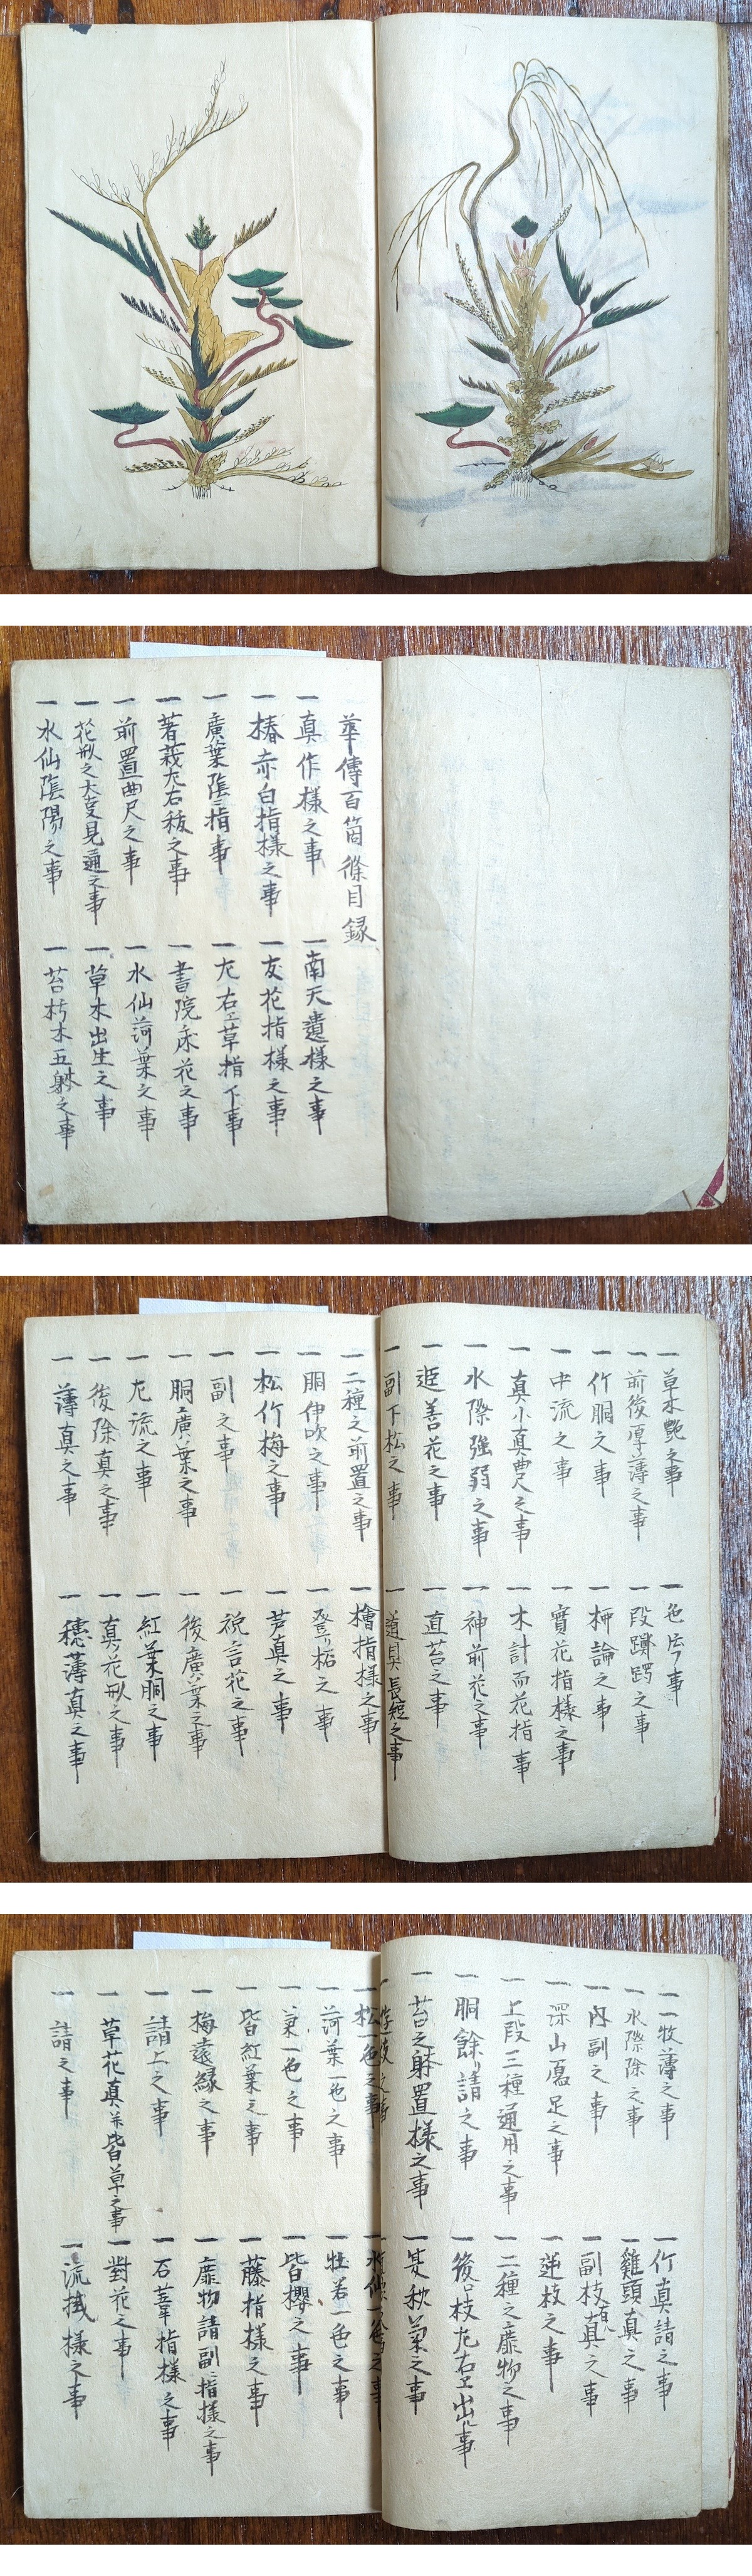 華傳百箇條目録
一真作様之事
一南天遣様之事
一椿赤白指様之事
一友花指様之事
一廣葉陰ニ指事
一左右エ草指ス事
一著莪左右秡之事
一書院床花之事
一前置曲尺之事
一水仙荷葉之事
一花形之大㕝見通之事
一草木出生之事
一水仙陰陽之事
一苔朽木五躰之事
一草木艶之事
一色
一前後厚薄之事
一段
一竹胴之事
一柳論之事
一中流之事
一實花指様之事
一真小真曲尺之事
一木計而花指事
一水際強弱之事
一神前花之事
一逛善花之事
一直苔之事
一副下松之事
一道具長短之事
一二種之前置之事
一檜指様之事
一胴伊吹之事
一登リ柘之事
一松竹梅之事
一芦真之事
一副之事
一祝言花之事
一胴ニ廣葉之事
一後廣葉之事
一左流之事
一紅葉胴之事
一後除真之事
一真ノ花形之事
一薄真之事
一穂薄真之事
一一牧薄之事
一竹真請之事
一水際除之事
一雞頭真之事
一内副之事
一副枝有真之事
一深山
一逆枝之事
一上段三種通用之事
一二種之靡物之事
一胴餘リ請之事
一後ロ枝左右エ出ル事
一苔之躰置様之事
一夏秋菊之事
一松一色之事
一水仙一色之事
一荷葉一色之事
一杜若一色之事
一菊一色之事
一皆櫻之事
一皆紅葉之事
一藤指様之事
一梅遠縁之事
一靡物請副ニ指様之事
一請上之事
一石菖指様之事
一草花真
一對花之事
一請之事
一流㧞様之事